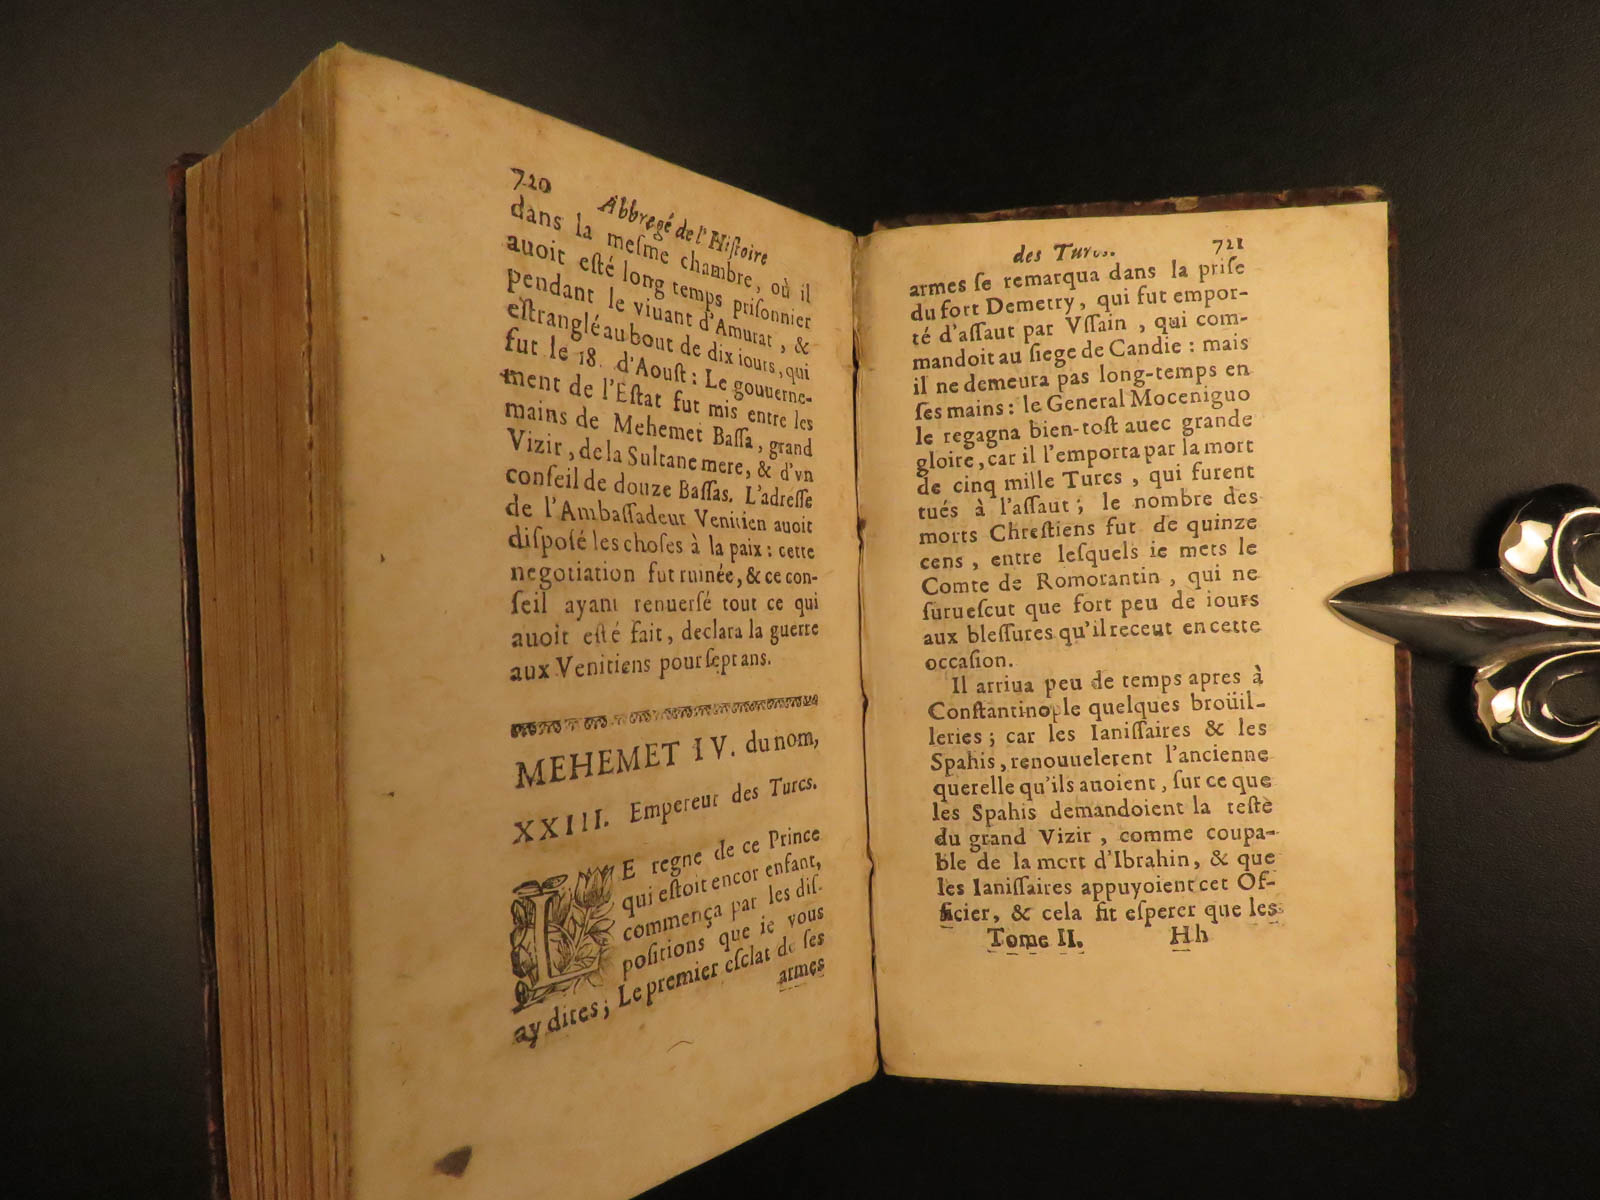 720 Abbregé de l'Hiſtoire
dans la meſme chambre, où il
auoit eſté long temps priſonnier
pendant le viuant d'Amurat, &
eſtranglé au bout de dix iours, qui
fut le 18. d'Aouſt: Le gouuerne-
ment de l'Eſtat fut mis entre les
mains de Mehemet Baſſa, grand
Vizir, de la Sultane mere, & d'vn
conſeil de douze Baſſas. L'adreſſe
de l'Ambaſſadeur Venitien auoit
diſpoſé les choſes à la paix: cette
negotiation fut ruinée, & ce con-
ſeil ayant renuerſé tout ce qui
auoit eſté fait, declara la guerre
aux Venitiens pour ſept ans.
MEHEMET IV. du nom,
XXIII. Empereur des Turcs.
LE regne de ce Prince
qui eſtoit encor enfant,
commença par les diſ-
poſitions que ie vous
ay dites; Le premier eſclat de ſes
armes
des Turcs. 721
armes ſe remarqua dans la priſe
du fort Demetry, qui fut empor-
té d'aſſaut par Vſſain, qui com-
mandoit au ſiege de Candie: mais
il ne demeura pas long-temps en
ſes mains: le General Moceniguo
le regagna bien-toſt auec grande
gloire, car il l'emporta par la mort
de cinq mille Turcs, qui furent
tués à l'aſſaut; le nombre des
morts Chreſtiens fut de quinze
cens, entre leſquels ie mets le
Comte de Romorantin, qui ne
ſurueſcut que fort peu de iours
aux bleſſures qu'il receut en cette
occaſion.
Il arriua peu de temps apres à
Conſtantinople quelques broüil-
leries; car les Ianiſſaires & les
Spahis, renouuelerent l'ancienne
querelle qu'ils auoient, ſur ce que
les Spahis demandoient la teſte
du grand Vizir, comme coupa-
ble de la mort d'Ibrahin, & que
les Ianiſſaires appuyoient cet Of-
ficier, & cela fit eſperer que les
Tome II. Hh